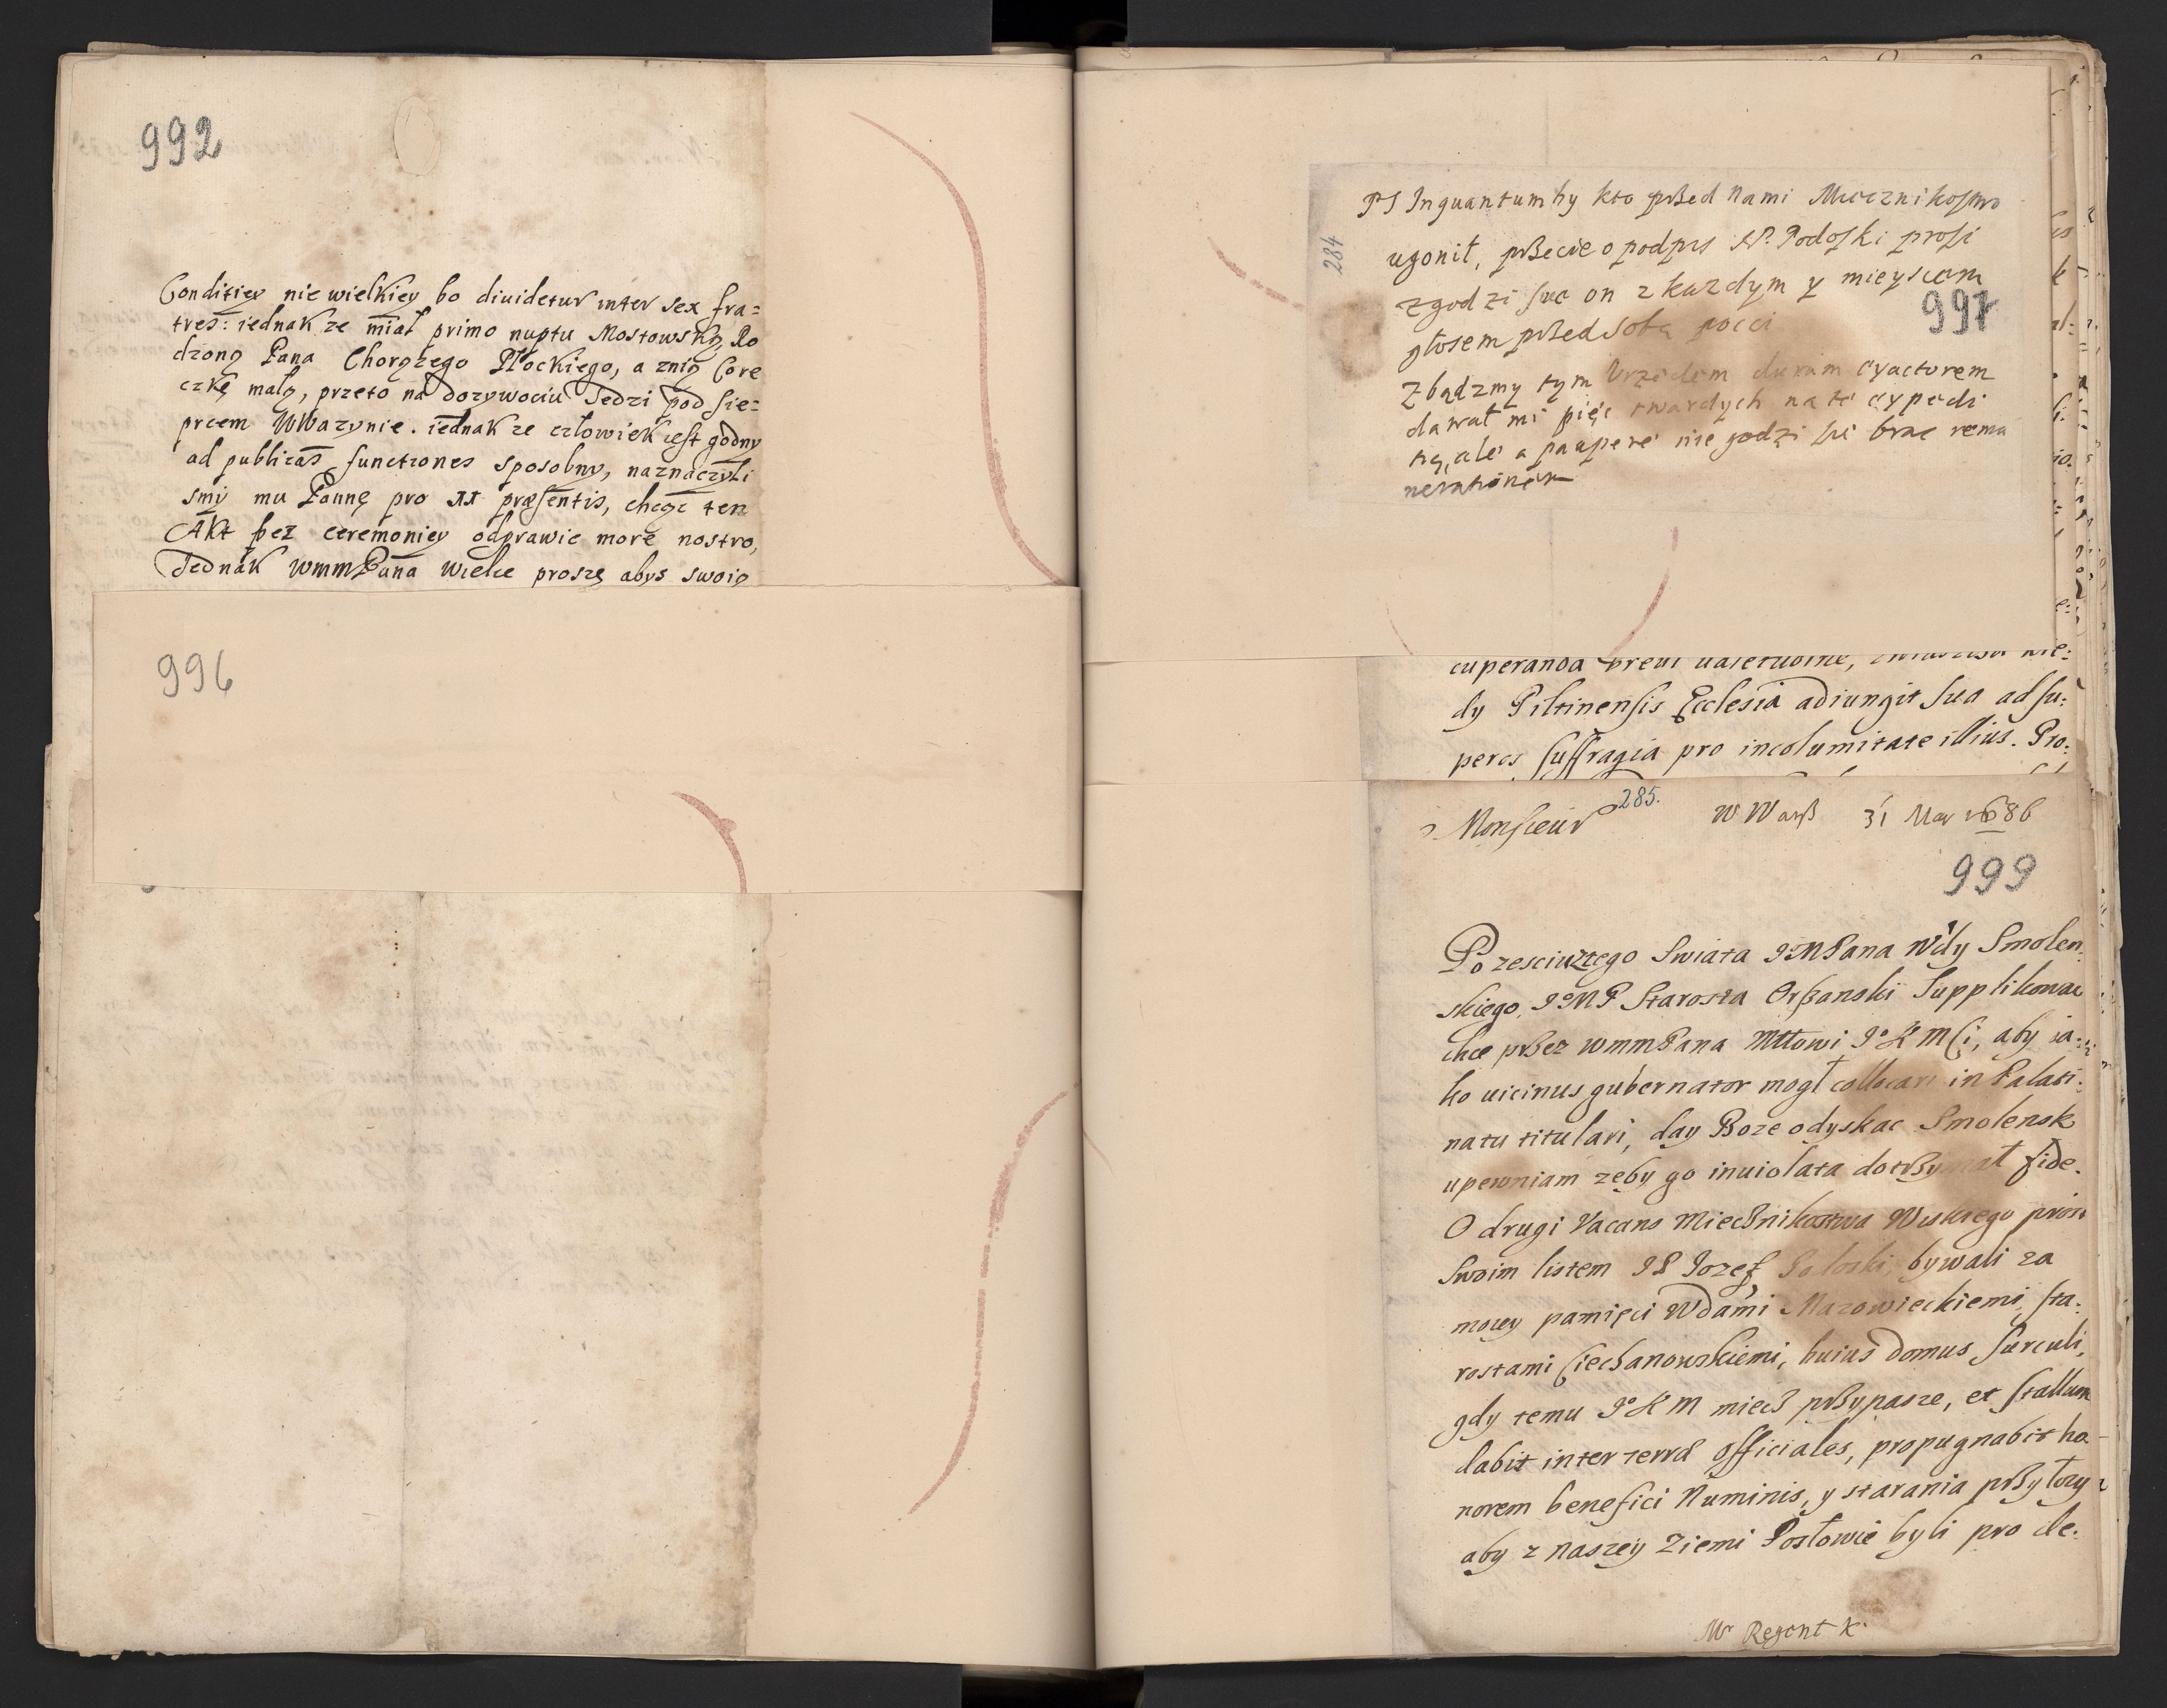 992
Conditiey nie wielkiey bo diuidetur inter sex fra=
tres: iednak ze miał primo nuptu Mostowską, Ro
dzoną Pana Chorązego Płockiego, a znią Core
czkę małą, przeto na dozywociu Iedzi pod Sie=
prcem WWazynie. iednak ze człowiek iest godny
ad publicas functiones sposobny, naznaczyli
smy mu Pannę pro præsentis, chcąc ten
Akt bez ceremoniey odprawic more nostro,
Iednak WmmPana wielce proszę abys swoią
996
284
PS Inquantumby kto przed nami Miecznikostwo
ugonił, przecie o podpis JP. Podoski prosi
zgodzi sie on z kazdym y mieyscem
997
głosem przed sobą
Zbądzmy tym Urzędem
dawał mi pięc twardych na tę expedi
tią, ale a paupere nie godzi się brac remu
nerationem
cuperanda breui ualetudine,
dy Piltinensis Ecclesia adiungit sua ad su:
peros suffragia pro incolumitate illius. Pro:
Monsieur 285. W Warß 31 Mar 1686
999
Po zesciu ztego Swiata JMPana Wdy Smolen
skiego, JMP Starosta Orßanski Supplikowac
chce przez WmmPana Mttowi JKMCi, aby ia:
ko uicinus gubernator mogł collocari in Palati:
natu titulari, day Boze odyskac Smolensk
upewniam zeby go inuiolata dotrzymał fide.
O drugi Vacans Miecznikostwa Wiskiego prosi
Swoim listem JP Iozef bywali za
moiey pamięci Wdami Mazowieckiemi, sta:
rostami Ciechanowskiemi, huius domus Surculi,
gdy temu JKM miecz przypasze, et stallum
dabit inter terræ officiales, propugnabit ho
norem benefici Numinis, y starania przyłozy
aby z naszey Ziemi Posłowie byli pro de:
Mr Regent K.